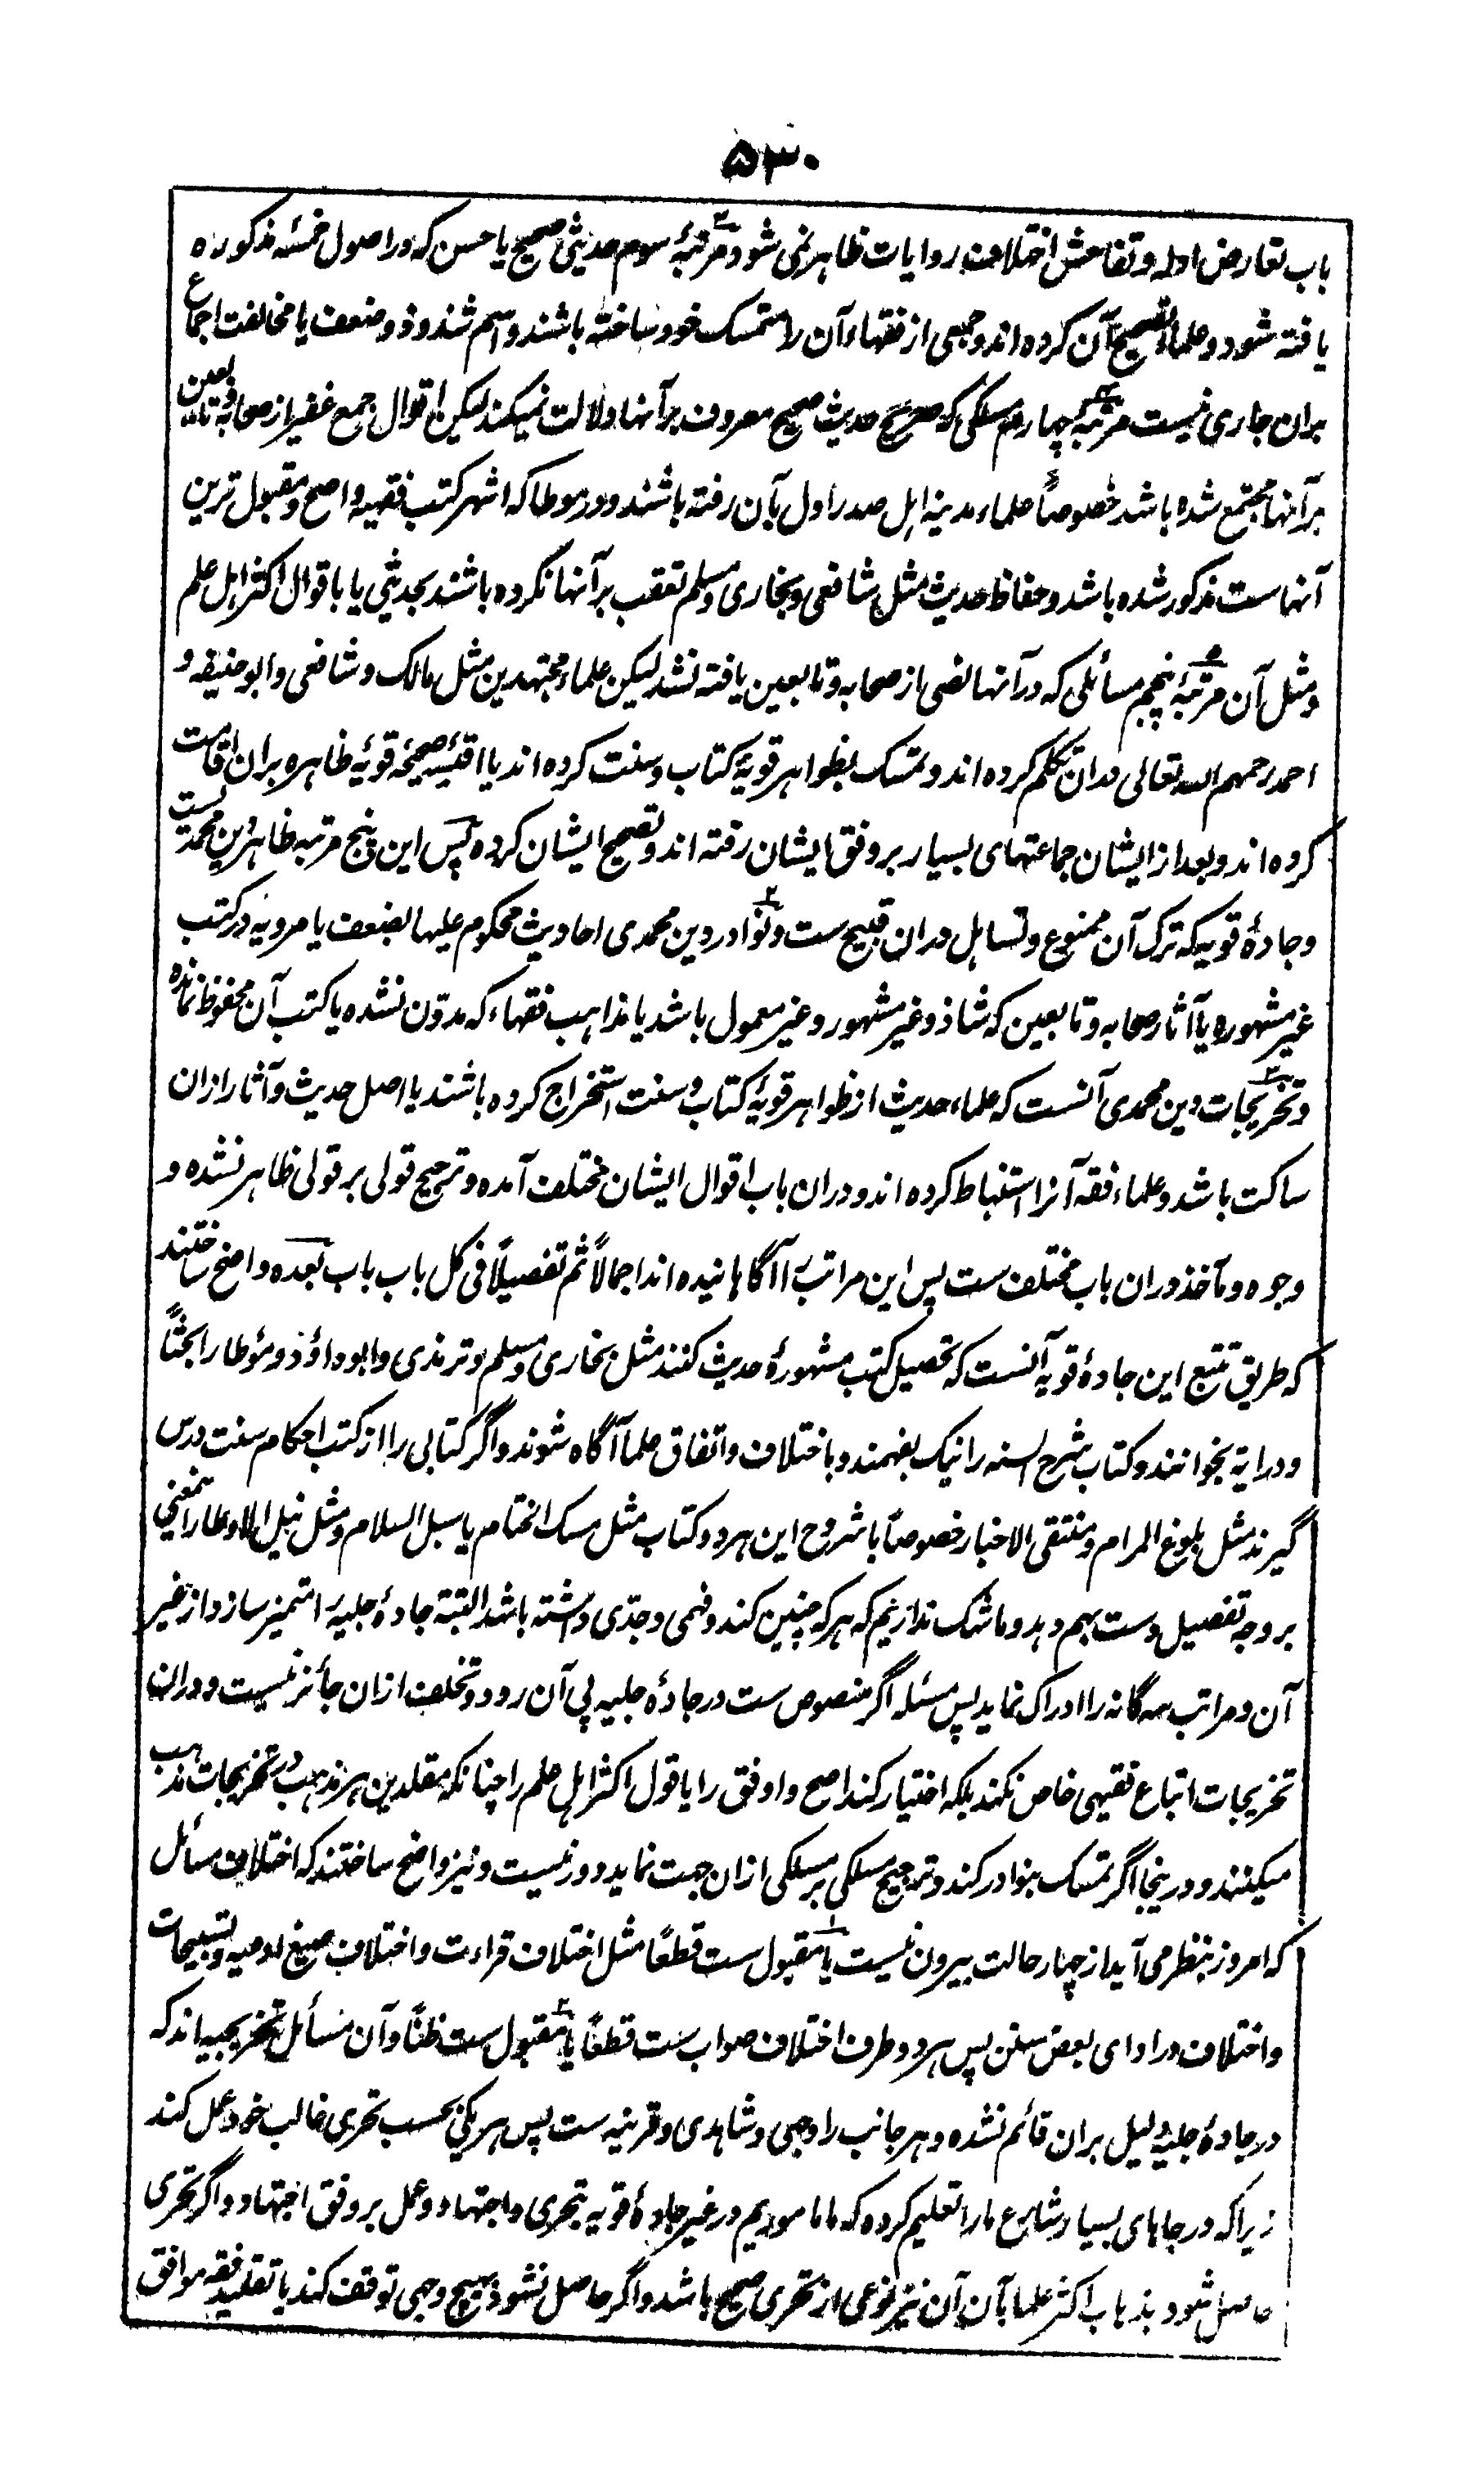 ۵۳۰
باب تعارض ادله و تفاحش اختلاف روایات ظاهر نمی شود و مرتبهٔ سوم حدیثی صحیح یا حسن که در اصول خمسه مذکوره
یافته شود و علماء تصحیح آن کرده اند و جمعی از فقهاء آن را متمسک خود ساخته باشند و اسم شذوذ و ضعف یا مخالفت اجماع
بران جاری نیست مرتبهٔ چهارم مسلکی که صریح حدیث صحیح معروف بر آنها دلالت نمیکند لیکن اقوال جمع غفیر از صحابه و تابعین
بر آنها مجتمع شده باشد خصوصاً علماء مدینه اهل صدر اول بآن رفته باشند و در موطا که اشهر کتب فقیه و اصح و مقبول ترین
آنهاست مذکور شده باشد و حفاظ حدیث مثل شافعی و بخاری و مسلم تعقب بر آنها نکرده باشند بحدیثی یا باقوال اکثر اهل علم
و مثل آن مرتبهٔ پنجم مسائلی که در آنها نصی از صحابه و تابعین یافته نشد لیکن علماء مجتهدین مثل مالک و شافعی و ابو حنیفه و
احمد رحمهم الله تعالی دران تکلم کرده اند و تمسک بظواهر قویهٔ کتاب و سنت کرده اند یا اقیسهٔ صحیحهٔ قویهٔ ظاهره بران اقامت
کرده اند و بعد از ایشان جماعتهای بسیار بر وفق ایشان رفته اند و تصحیح ایشان کرده پس این پنج مرتبه ظاهر دین محمدیست
و جادهٔ قویه که ترک آن ممنوع و تساهل دران قبیح ست و نوادر دین محمدی احادیث محکوم علیها بضعف یا مرویه در کتب
غیر مشهوره یا آثار صحابه و تابعین که شاذ و غیر مشهور و غیر معمول باشد یا مذاهب فقهاء که مدوّن نشده یا کتب آن محفوظ نمانده
و تخریجات دین محمدی آنست که علماء حدیث از ظواهر قویهٔ کتاب و سنت استخراج کرده باشند یا اصل حدیث و آثار ازان
ساکت باشد و علماء فقه آنرا استنباط کرده اند و دران باب اقوال ایشان مختلف آمده و ترجیح قولی بر قولی ظاهر نشده و
وجوه و مآخذ دران باب مختلف ست پس این مراتب را آگاهانیده اند اجمالاً ثم تفصیلاً فی کل باب باب بعده واضح ساختند
که طریق تتبع این جادهٔ قویه آنست که تحصیل کتب مشهورهٔ حدیث کنند مثل بخاری و مسلم و ترمذی و ابوداؤد و مؤطا را بحثاً
و درایة بخوانند و کتاب شرح السنه را نیک بفهمند و باختلاف و اتفاق علما آگاه شوند و اگر کتابی را از کتب احکام سنت درس
گیرند مثل بلوغ المرام و منتقی الاخبار خصوصاً با شروح این هر دو کتاب مثل مسک الختام یا سبل السلام و مثل نیل الاوطار این معنی
بر وجه تفصیل دست بهم دهد و ما شک نداریم که هر که چنین کند و فهمی و جدّی داشته باشد البته جادهٔ جلیه را متمیز سازد از غیر
آن و مراتب سه گانه را ادراک نماید پس مسئله اگر منصوص ست در جادهٔ جلیه پی آن رود و تخلف ازان جائز نیست و دران
تخریجات اتباع فقیهی خاص نکند بلکه اختیار کند اصح و اوفق را یا قول اکثر اهل علم را چنانکه مقلدین هر مذهب در تخریجات مذهب
میکنند و درینجا اگر تمسک بنوادر کند و ترجیح مسلکی بر مسلکی ازان جهت نماید دور نیست و نیز واضح ساختند که اختلاف مسائل
که امروز بنظر می آید از چهار حالت بیرون نیست یا مقبول ست قطعًا مثل اختلاف قراءت و اختلاف صیغ ادعیه و تسبیحات
و اختلاف در ادای بعض سنن پس هر دو طرف اختلاف صواب ست قطعًا یا مقبول ست ظنًا و آن مسائل تخریجیه اند که
در جادهٔ جلیه دلیل بران قائم نشده و هر جانب را وجهی و شاهدی و قرینه ست پس هر یکی بحسب تحری غالب خود عمل کند
زیرا که در جاهای بسیار شارع ما را تعلیم کرده که ما ماموریم در غیر جادهٔ قویه بتحری و اجتهاد و عمل بر وفق اجتهاد و اگر تحری
حاصل شود بذهاب اکثر علما بآن آن نیز نوعی از تحری صحیح باشد و اگر حاصل نشود بهیچ وجهی توقف کند یا تقلید فقه موافق